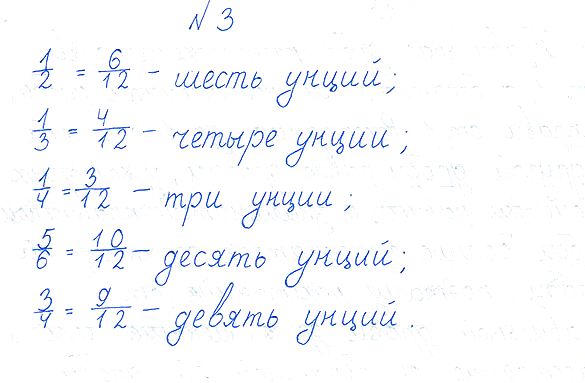 № 3
1/2 = 6/12 – шесть унций;
1/3 = 4/12 – четыре унции;
1/4 = 3/12 – три унции;
5/6 = 10/12 – десять унций;
3/4 = 9/12 – девять унций.